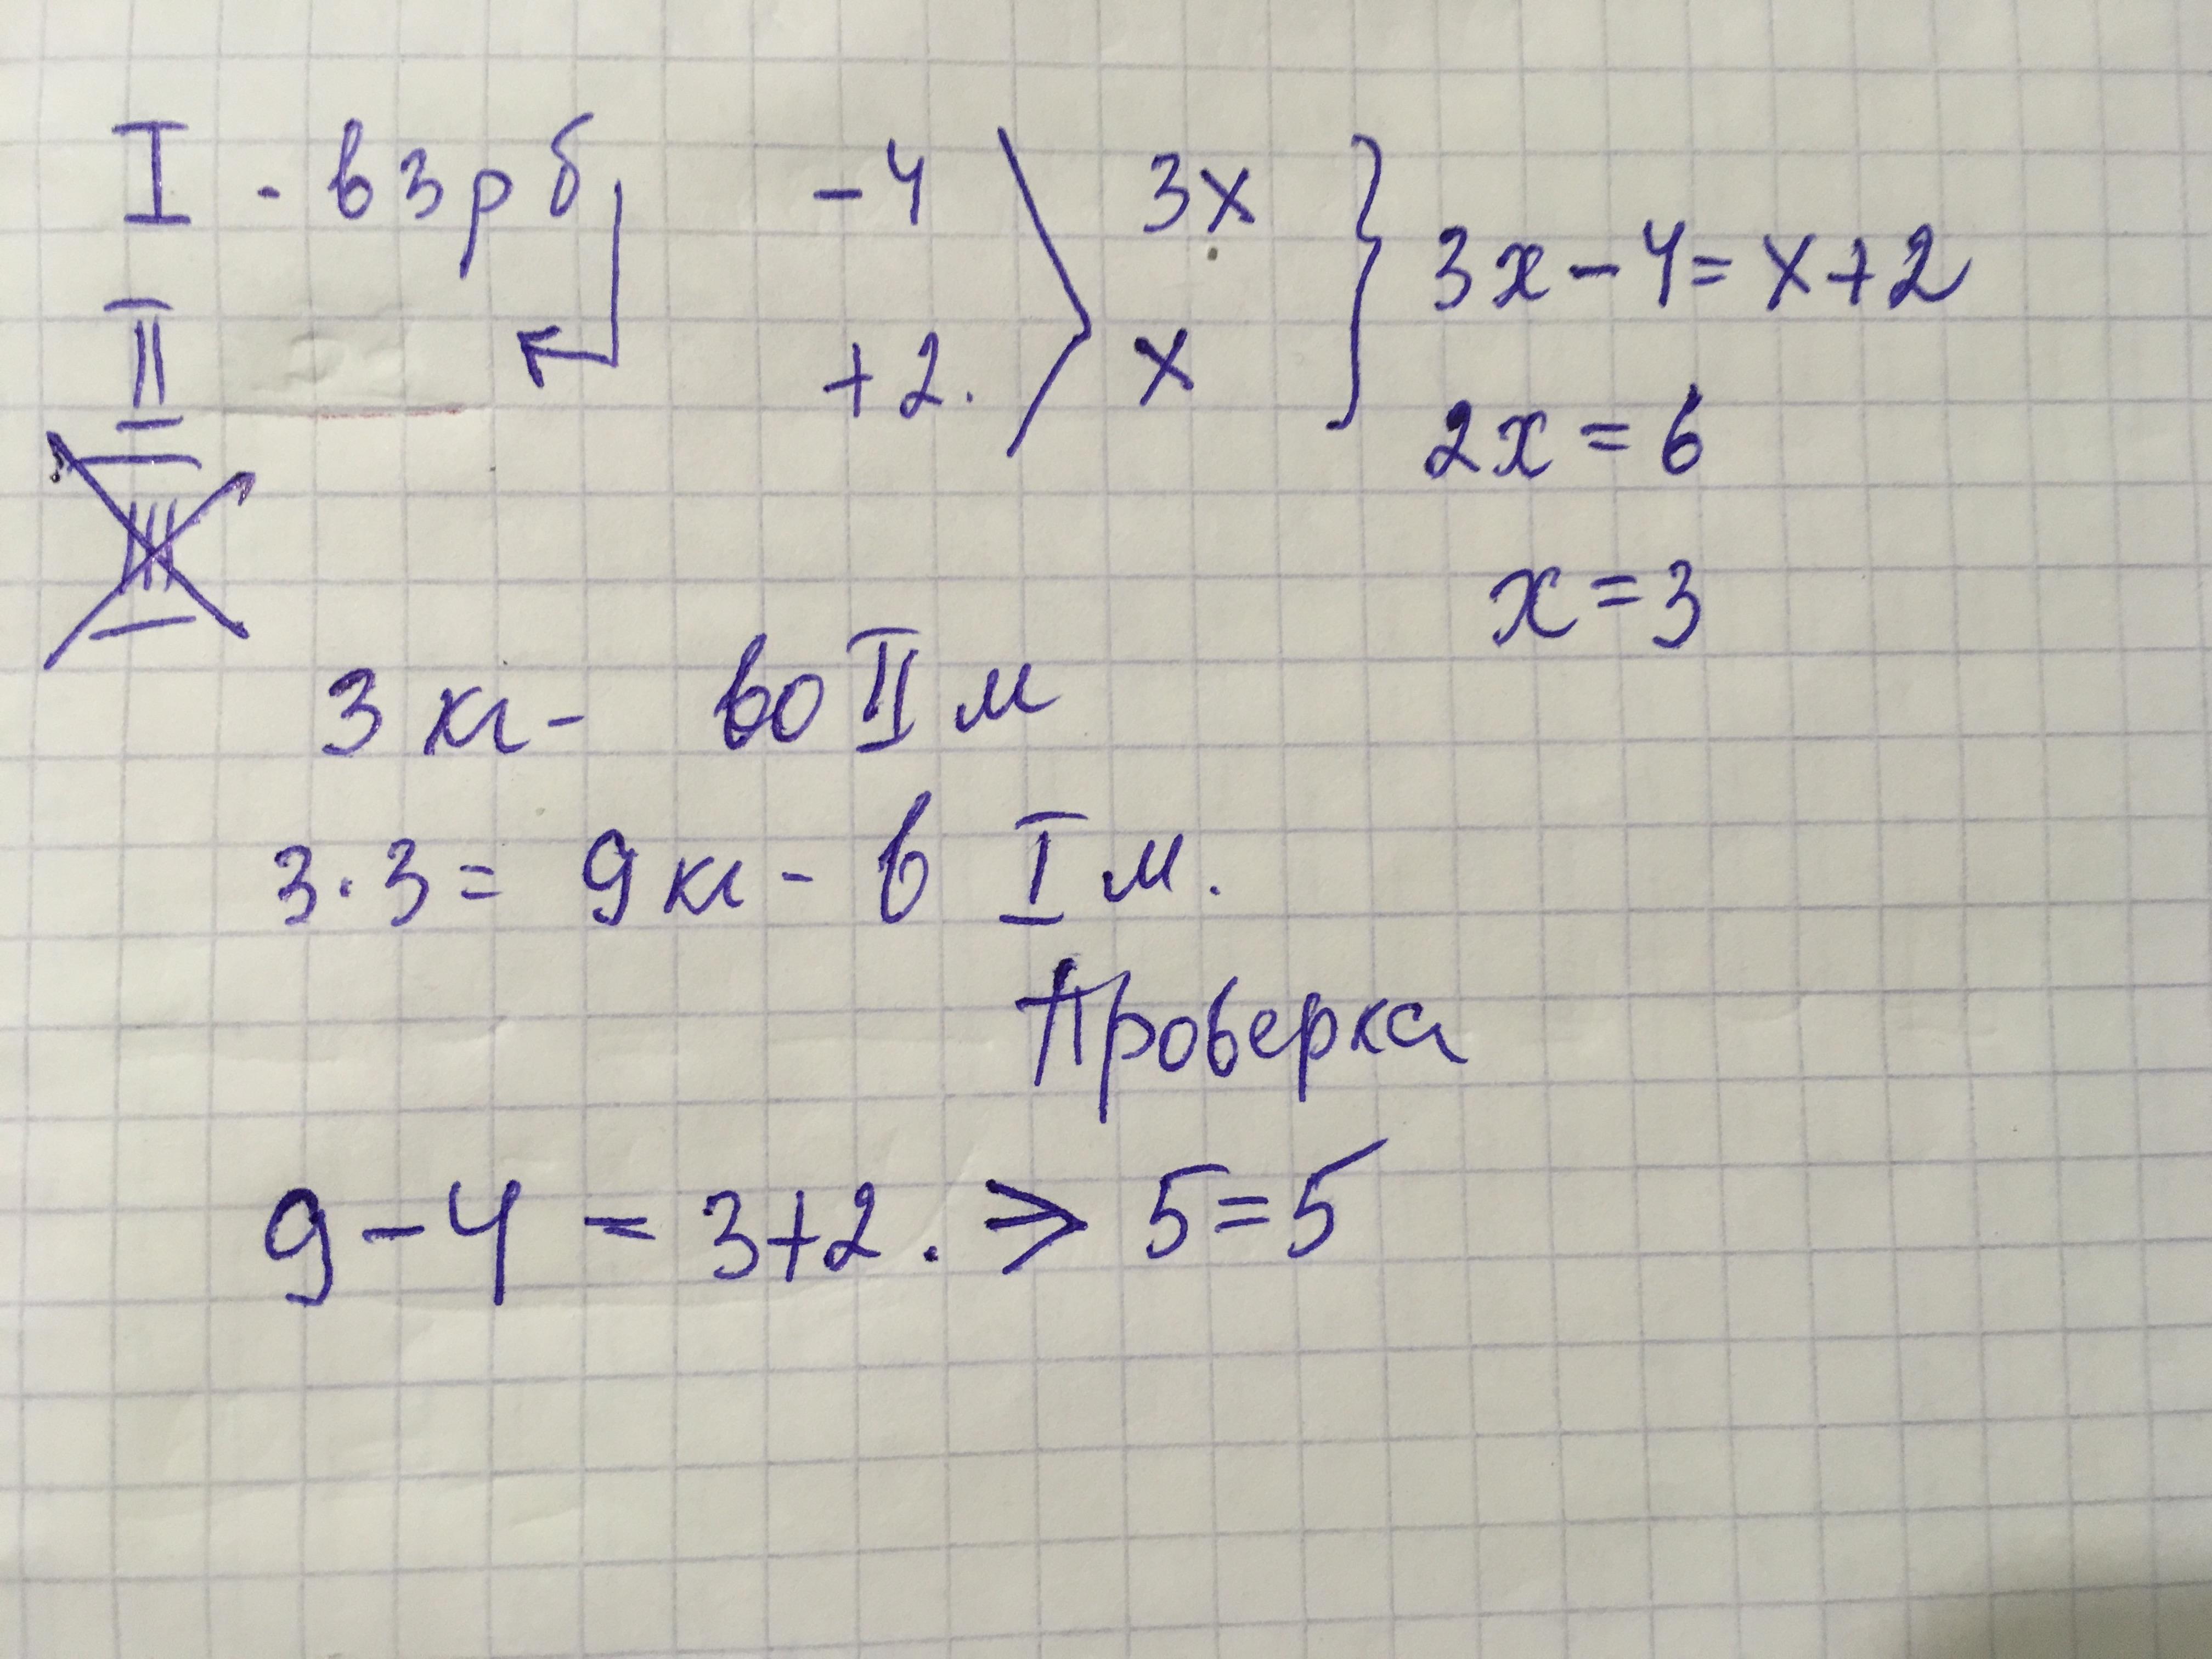 I - в 3 р б -4 3x
3x - 4 = x + 2
II +2. x
2x = 6
III
x = 3
3 кг - во II м
3 · 3 = 9 кг - в I м.
Проверка
9 - 4 = 3 + 2. => 5 = 5